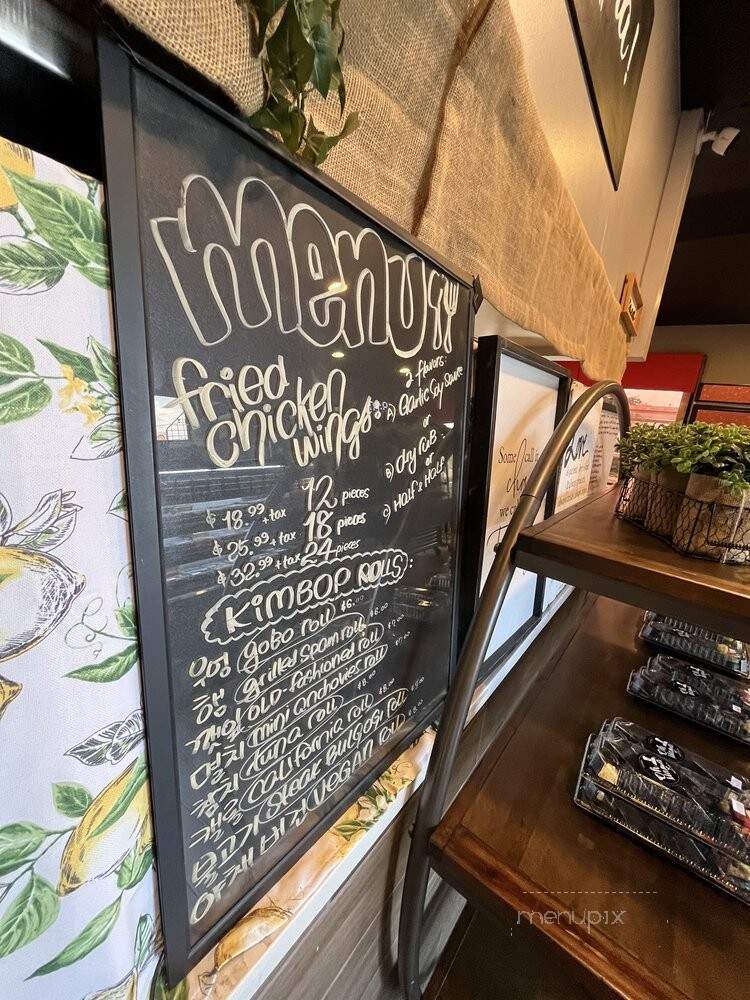 menu
fried
chicken
wings
2 flavors:
A) Garlic Soy Sauce
or
B) dry rub
or
C) Half & Half
12 pieces
$18.99 +tax
18 pieces
$25.99 +tax
24 pieces
$32.99 +tax
KimBOP ROLLS:
우엉 gobo roll $6.00
햄 grilled spam roll
깻잎 OLD-fashioned roll
멸치 mini anchovies roll
참치 tuna roll
캘롤 california roll
불고기 steak Bulgogi roll
야채 비건 VEGAN roll
Some call it
menupix